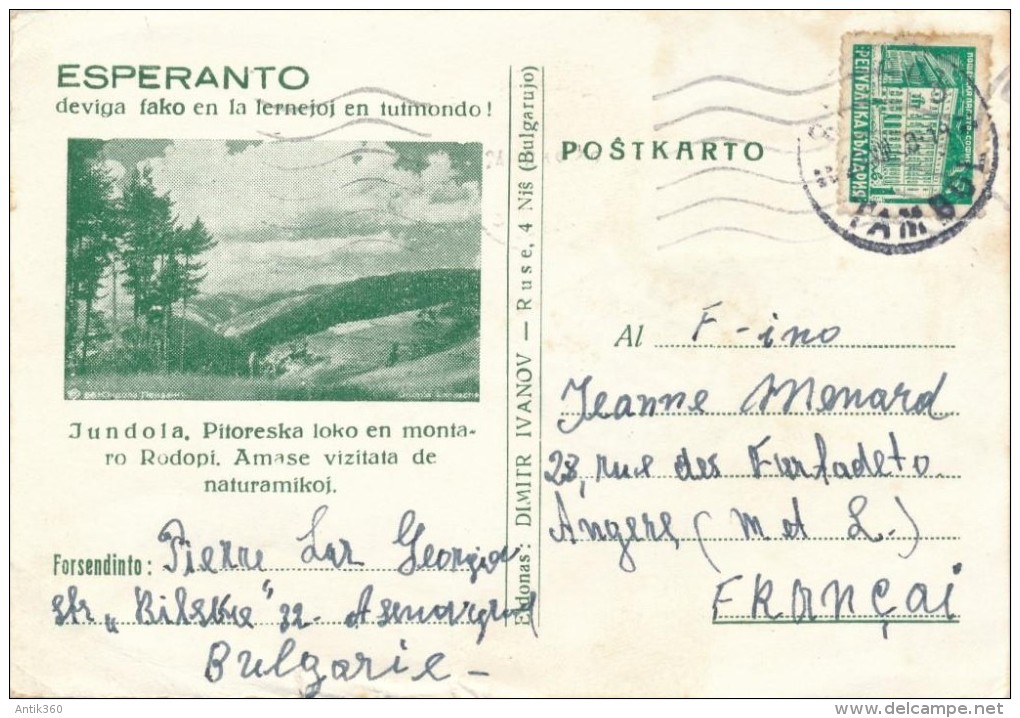 ESPERANTO
deviga fako en la lernejoj en tutmondo!
Jundola. Pitoreska loko en monta-
ro Rodopi. Amase vizitata de
naturamikoj.
Forsendinto: Pierre Laz Georgiev
str „Bilska" 32- Asenovgrad
Bulgarie -
Eldonas: DIMITR IVANOV — Ruse, 4 Niš (Bulgarujo)
POŜTKARTO
РЕПУБЛИКА БЪЛГАРИЯ
ЯМБОЛ
Al F-ino
Jeanne Menard
23, rue des Furtadeto
Angere (M et L.)
FRANÇAI
Antik360
delcampe.net